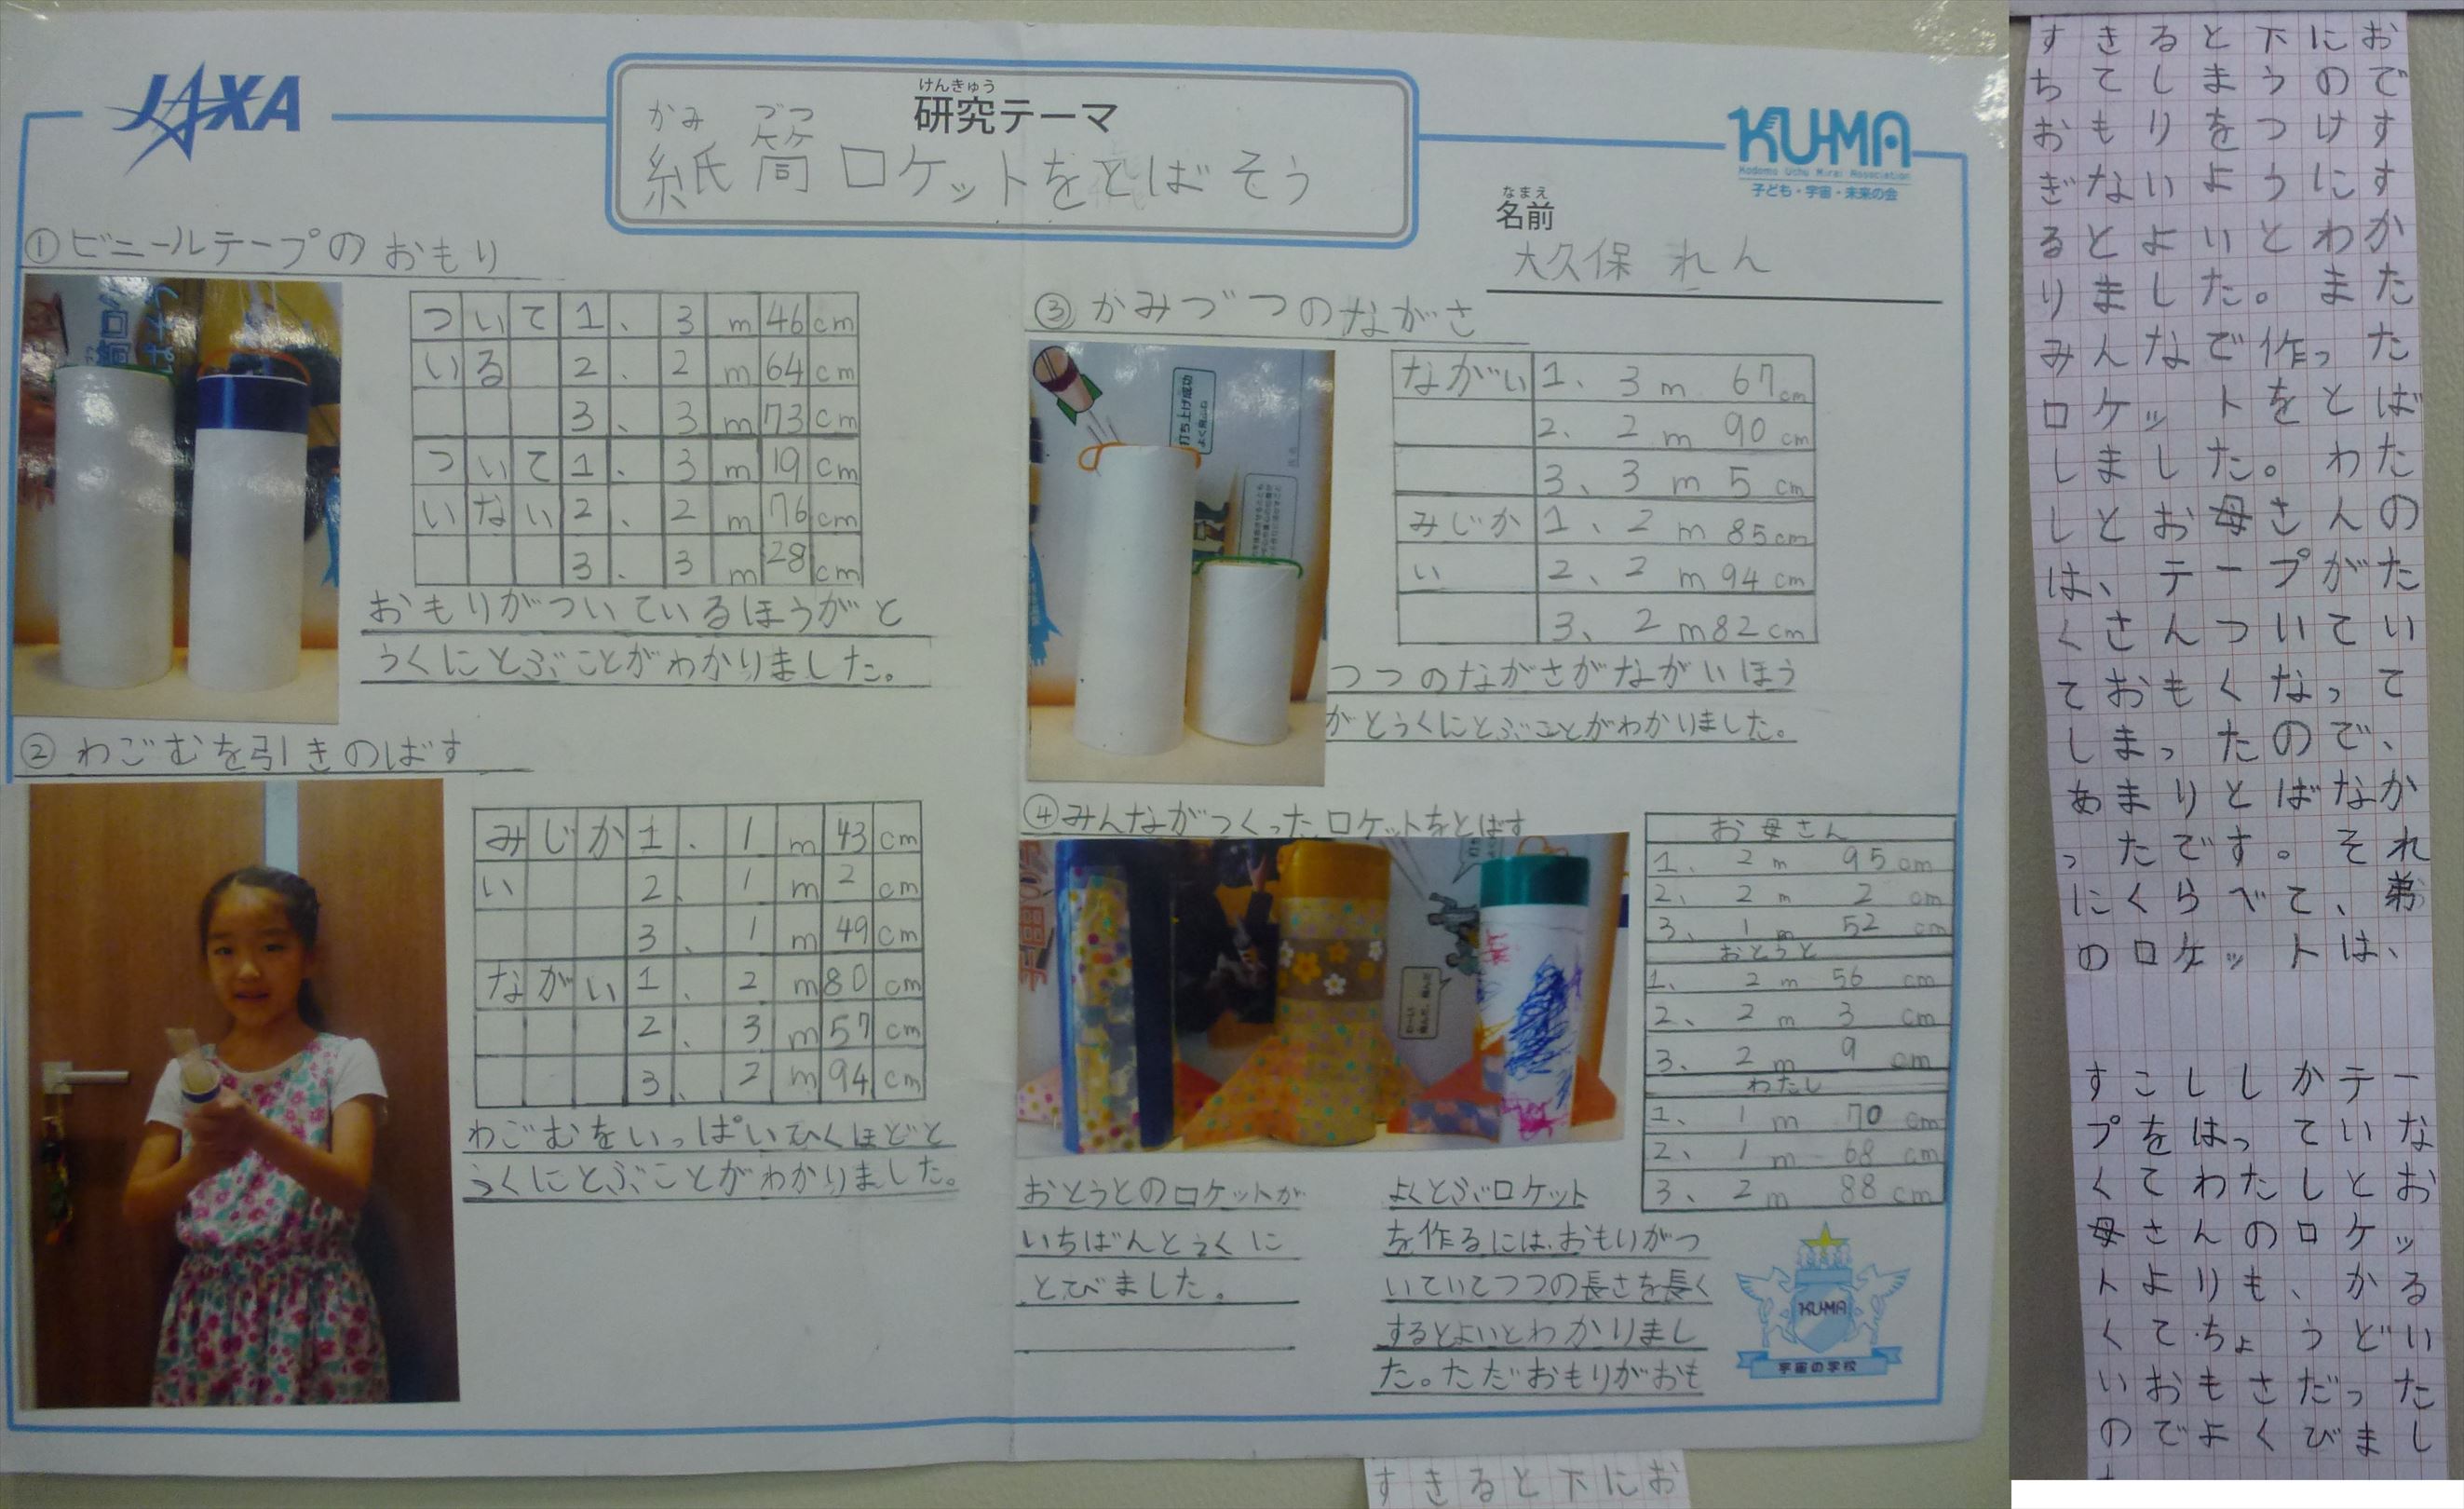 JAXA
けんきゅう
研究テーマ
かみ づつ
紙筒ロケットをとばそう
KU-MA
Kodomo Uchu Mirai Association
子ども・宇宙・未来の会
なまえ
名前
大久保 れん
①ビニールテープのおもり
ついて 1、 3m 46cm
いる 2、 2m 64cm
3、 3m 73cm
ついて 1、 3m 19cm
いない 2、 2m 76cm
3、 3m 28cm
おもりがついているほうがと
うくにとぶことがわかりました。
②わごむを引きのばす
みじか 1、 1m 43cm
い 2、 1m 2cm
3、 1m 49cm
ながい 1、 2m 80cm
2、 3m 57cm
3、 2m 94cm
わごむをいっぱいひくほどと
うくにとぶことがわかりました。
③かみづつのながさ
打ち上げ成功
ながい 1、 3m 67cm
2、 2m 90cm
3、 3m 5cm
みじか 1、 2m 85cm
い 2、 2m 94cm
3、 2m 82cm
つつのながさがながいほう
がとうくにとぶことがわかりました。
④みんながつくったロケットをとばす
お母さん
1、 2m 95cm
2、 2m 2cm
3、 1m 52cm
おとうと
1、 2m 56cm
2、 2m 3cm
3、 2m 9cm
わたし
1、 1m 70cm
2、 1m 68cm
3、 2m 88cm
おとうとのロケットが
いちばんとうくに
とびました。
よくとぶロケット
を作るには、おもりがつ
いていてつつの長さを長く
するとよいとわかりまし
た。ただおもりがおも
KU-MA
宇宙の学校
すきると下にお
すきると下にお
ちてしまうので
おもりをつけす
ぎないようにす
るとよいとわか
りました。また
みんなで作った
ロケットをとば
しました。わた
しとお母さんの
は、テープがた
くさんついてい
ておもくなって
しまったので、
あまりとばなか
ったです。それ
にくらべて、弟
のロケットは、
すこししかテー
プをはっていな
くてわたしとお
母さんのロケッ
トよりも、かる
くてちょうどい
いおもさだった
のでよくびまし